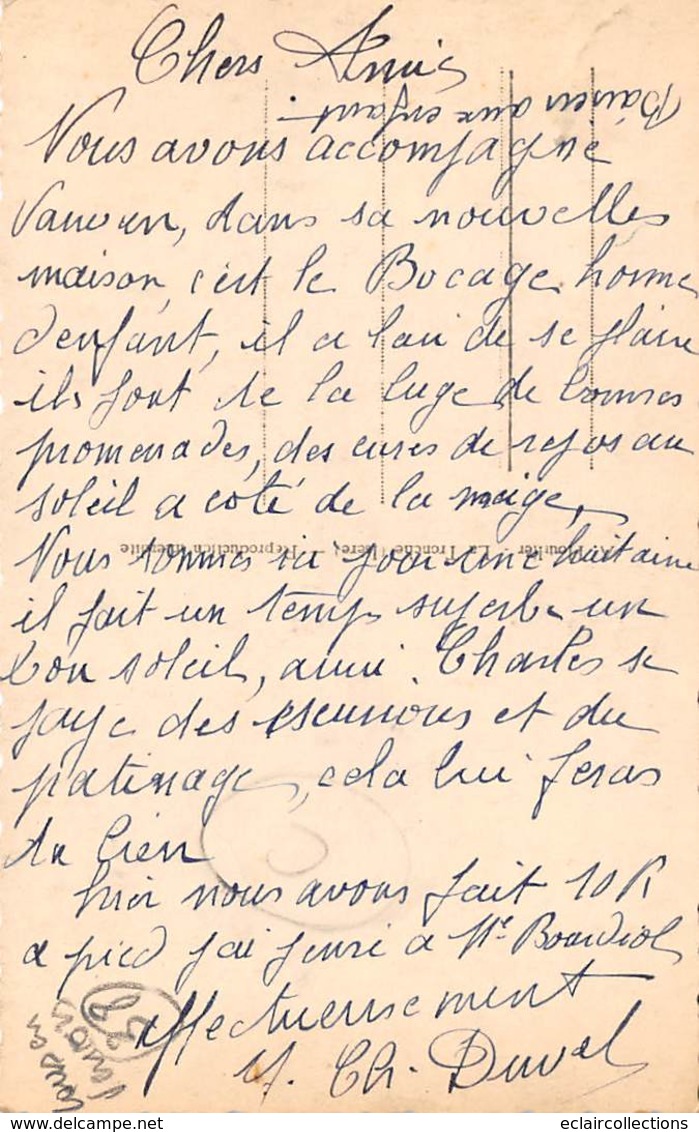 Chers Amis
Baisers aux enfant
Nous avons accompagné
dans sa nouvelles
maison, c'est le Bocage, home
d'enfant, il a l'air de se plaire
ils font de la luge, de bonnes
promenades, des cures de repos au
soleil a coté de la neige,
La Tronche (Isère) - Reproduction interdite
Nous sommes ici pour une huitaine
il fait un temps superbe un
bon soleil, aussi Charles se
paye des escursions et du
patinage, cela lui feras
du bien
hier nous avons fait 10 K
a pied j'ai pensé a Mle
affectueusement
M. Ch. Duval
eclaircollections